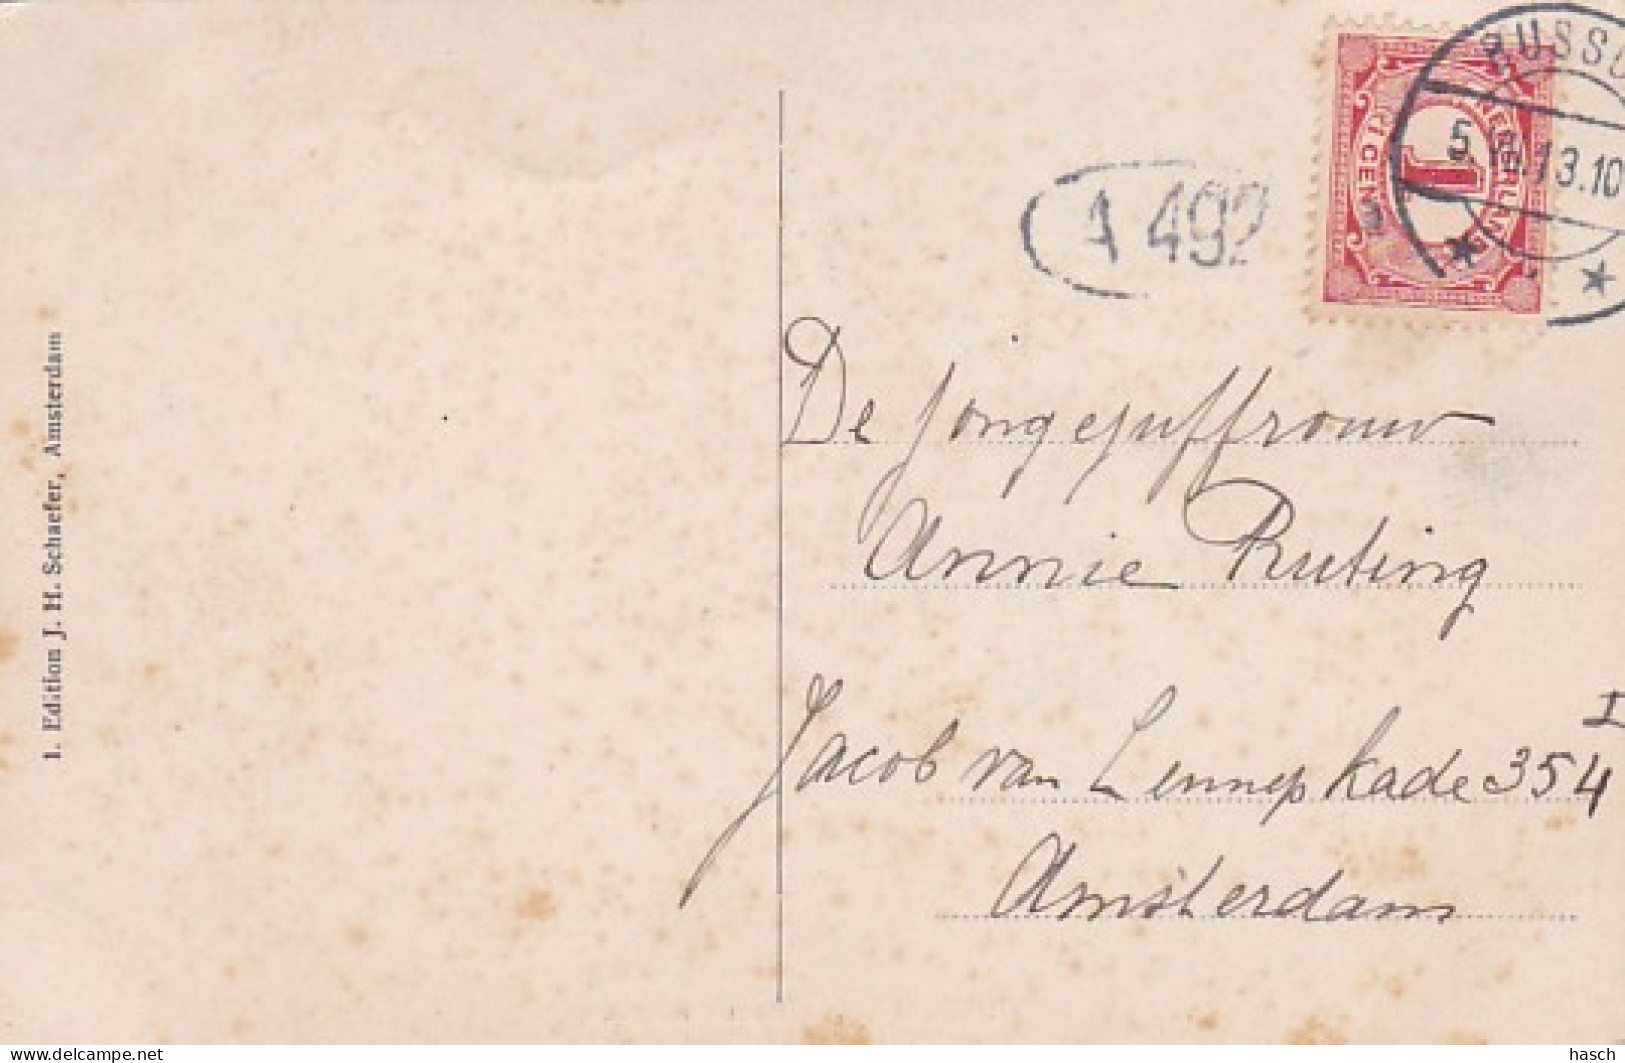 BUSSU
5. 13.10
NEDERLAND
1
CENT
A 492
De Jongejuffrouw
Annie Ruting
I
Jacob van Lennep Kade 354
Amsterdam
1. Edition J. H. Schaefer, Amsterdam
www.delcampe.net
hasch